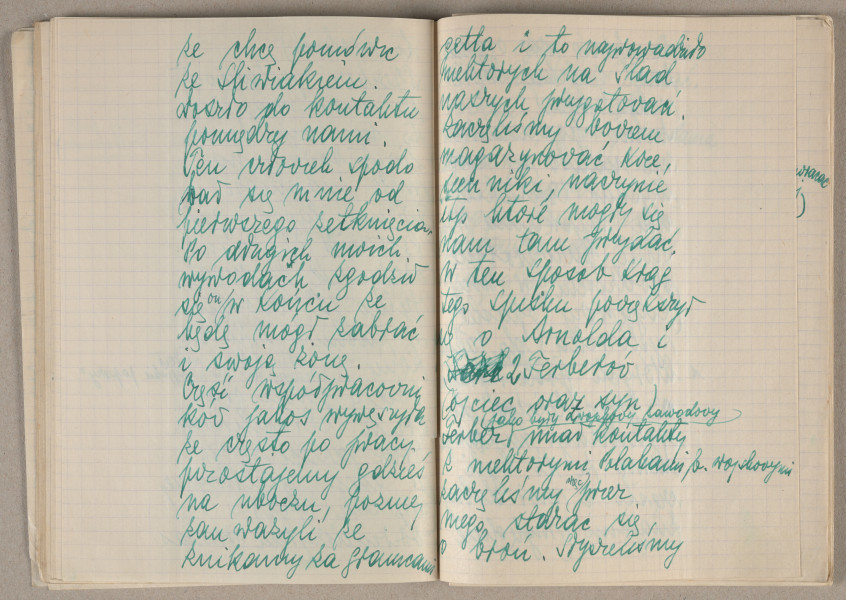 że chcę pomówić
ze Śliwiakiem.
Doszło do kontaktu
pomiędzy nami.
Ten człowiek spodo
bał się mnie od
pierwszego zetknięcia.
Po długich moich
wywodach zgodził
się on w końcu że
będę mógł zabrać
i swoją żonę.
Część współpracowni
ków jakoś wywęszyła
że często po pracy
pozostajemy gdzieś
na uboczu, później
zauważyli że
znikamy za granicami
getta i to naprowadziło
niektórych na ślad
naszych przygotowań.
Zaczęliśmy bowiem
magazynować koce,
sienniki, naczynie
itp które mogły się
nam tam przydać.
W ten sposób krąg
tego spisku powiększył
się o Arnolda i
2 Ferberów
(ojciec oraz syn)
(jako były zawodowy
Ferber miał kontakty
z niektórymi Polakami, b. wojskowymi
zaczęliśmy więc przez
niego starać się
o broń. Słyszeliśmy